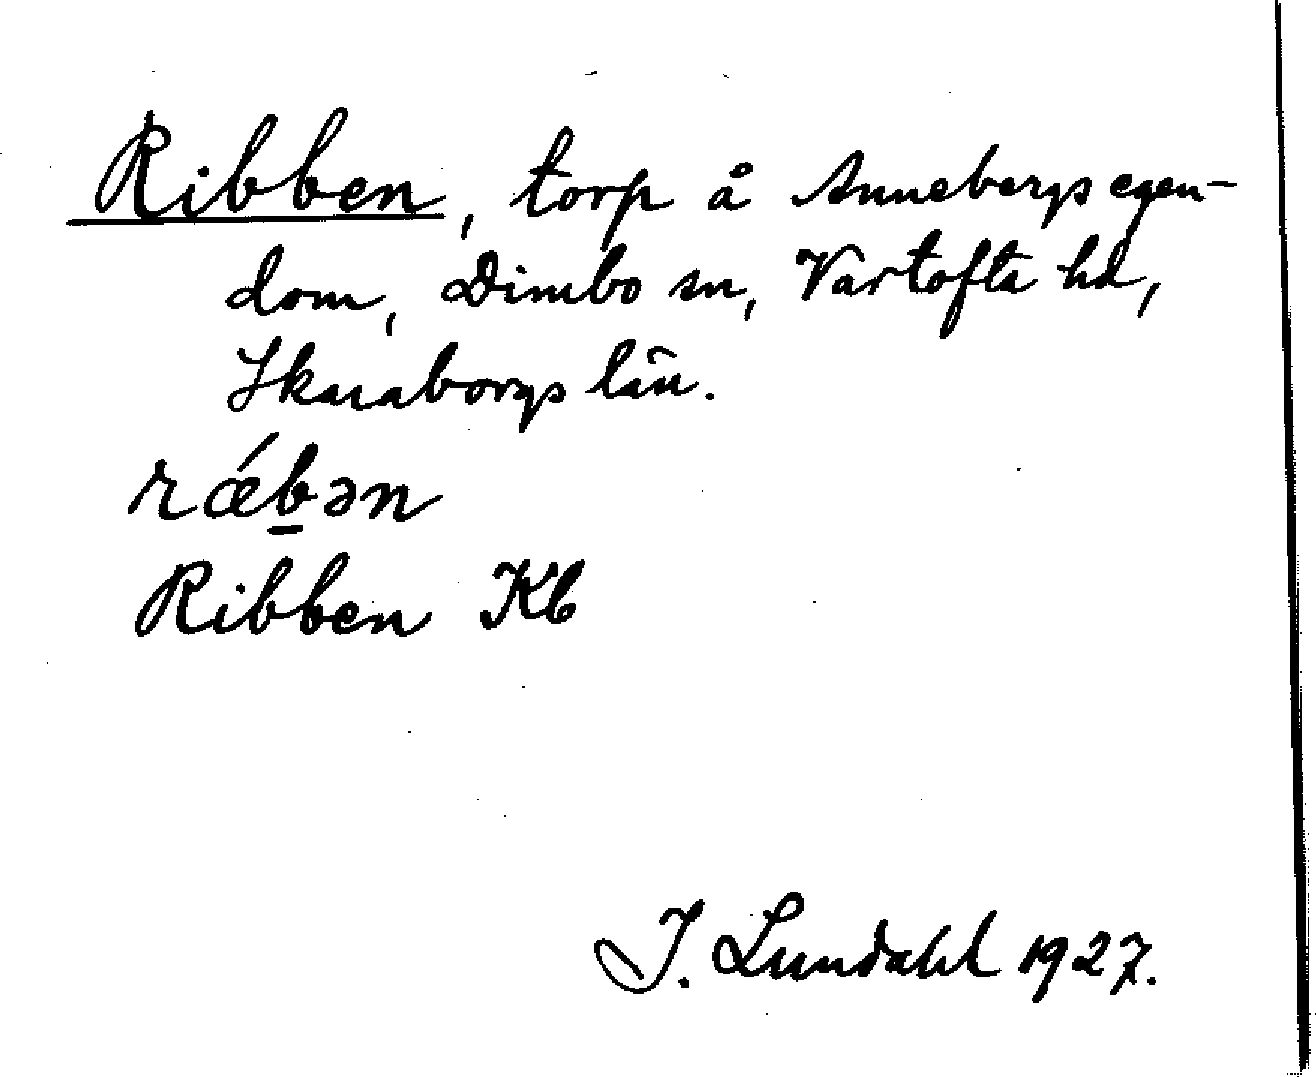 Ribben, torp å Annebergs egen-
dom, Dimbo sn, Vartofta hd,
Skaraborgs län.
rǽb̲ən
Ribben Kb
I. Lundahl 1927.